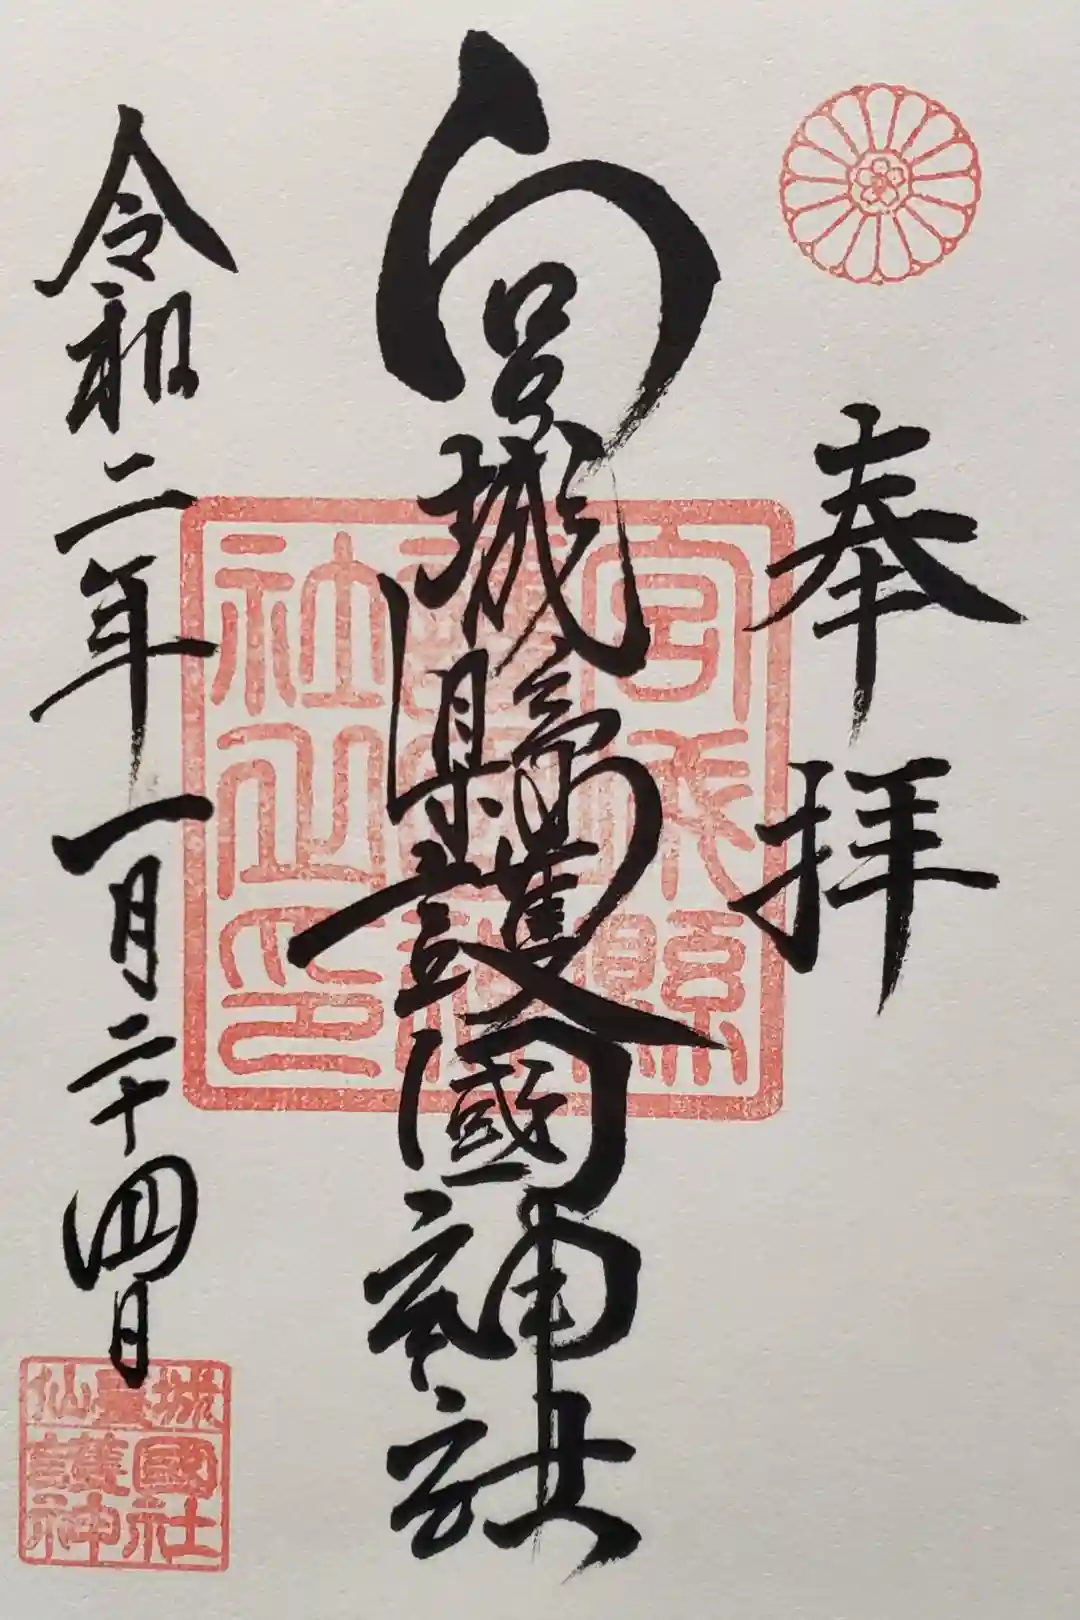 奉拝
宮城縣護國神社
令和二年一月二十四日
宮城縣
護國神
社之印
仙臺城
護國
神社